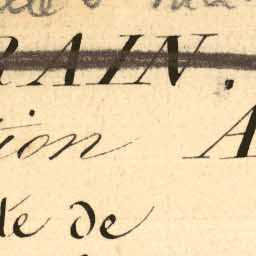 RAIN.
tion A
té de